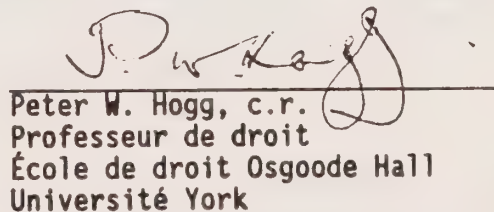 P W Hogg
Peter W. Hogg, c.r.
Professeur de droit
École de droit Osgoode Hall
Université York